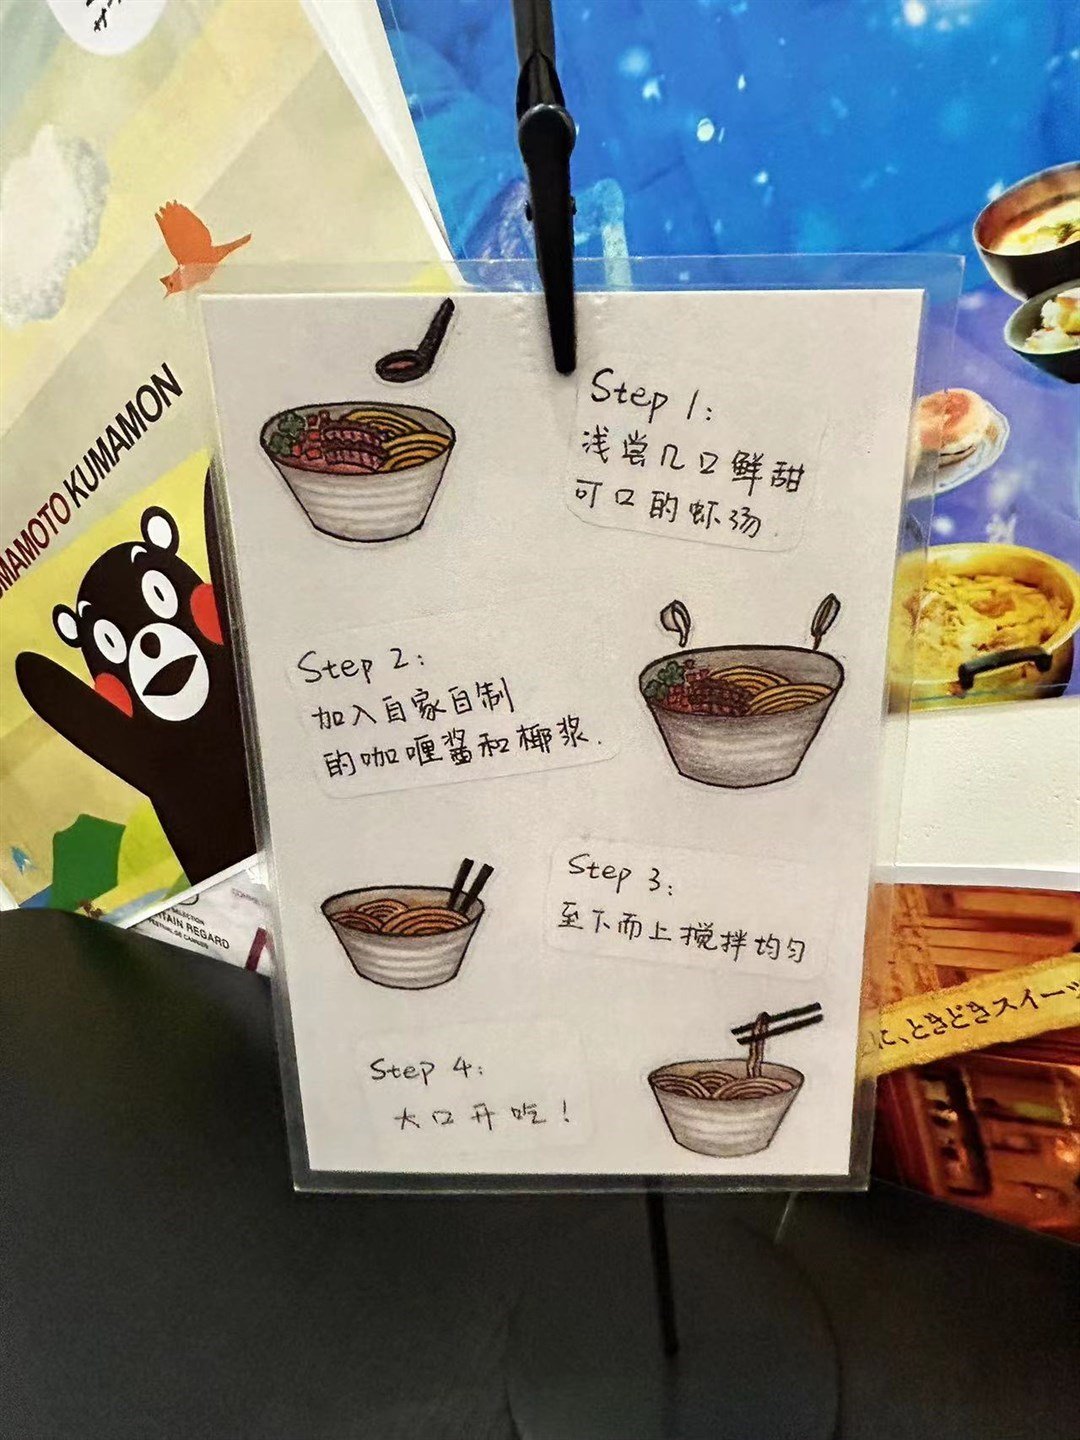 KUMAMOTO KUMAMON
Step 1:
浅尝几口鲜甜
可口的虾汤.
Step 2:
加入自家自制
的咖喱酱和椰浆.
Step 3:
至下而上搅拌均匀
Step 4:
大口开吃!
SELECTION
CERTAIN REGARD
FESTIVAL DE CANNES
に、ときどきスイーツ